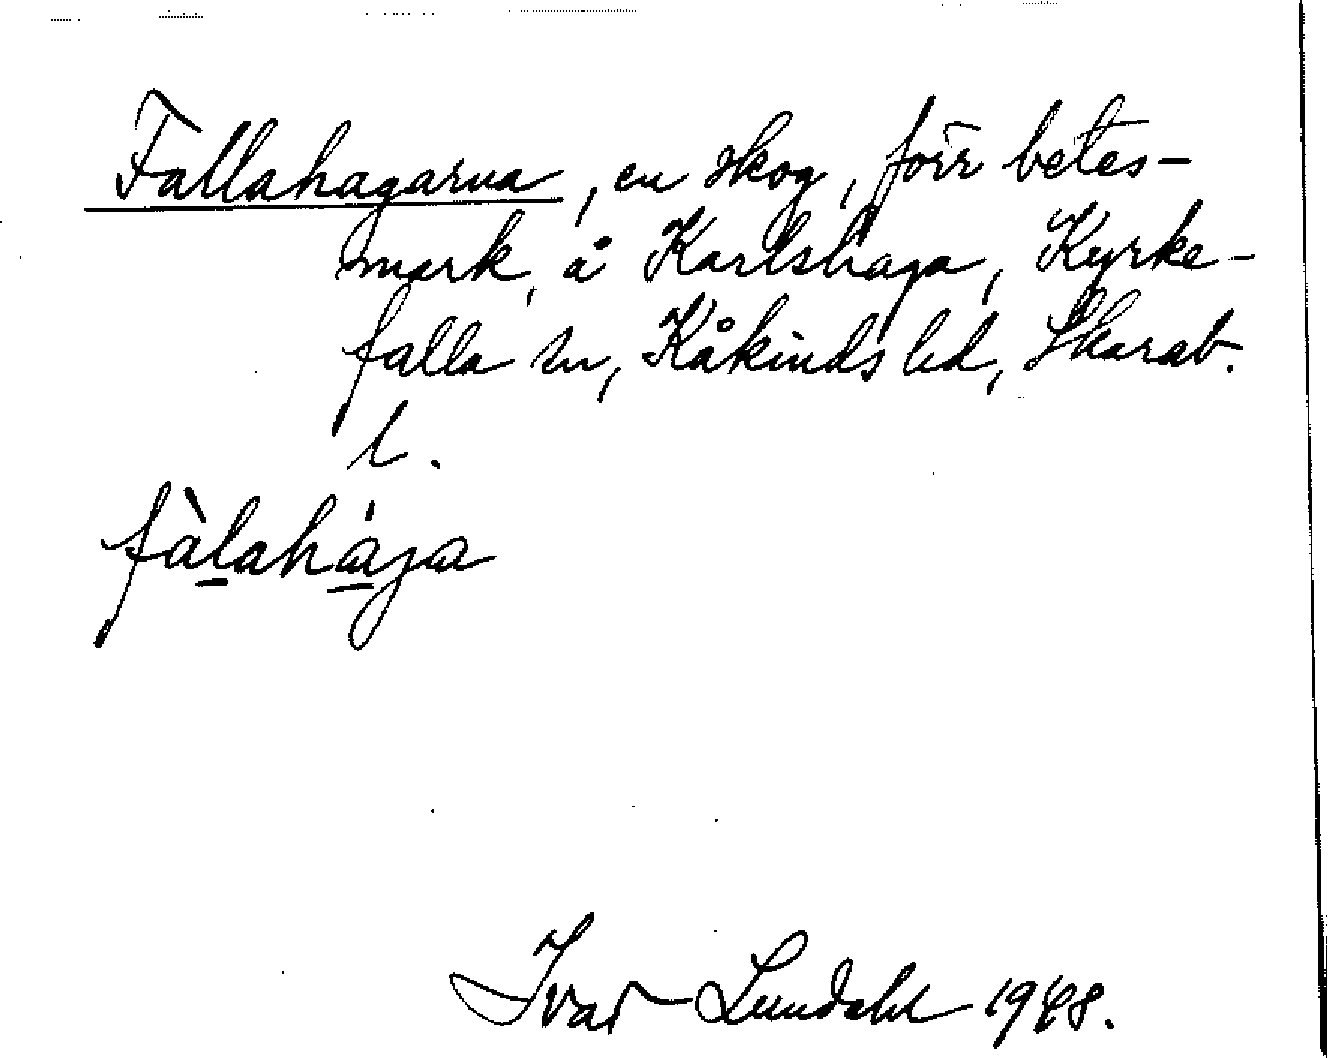 Fallahagarna, en skog, förr betes-
mark, å Karlshaga, Kyrke-
falla sn, Kåkinds hd, Skarab.
l.
fàlahága
Ivar Lundahl 1948.